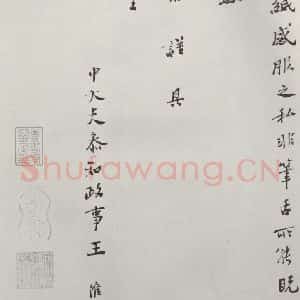 感服之私非筆舌所能既
謹具
中大夫叅知政事王 淮
Shufawang.CN